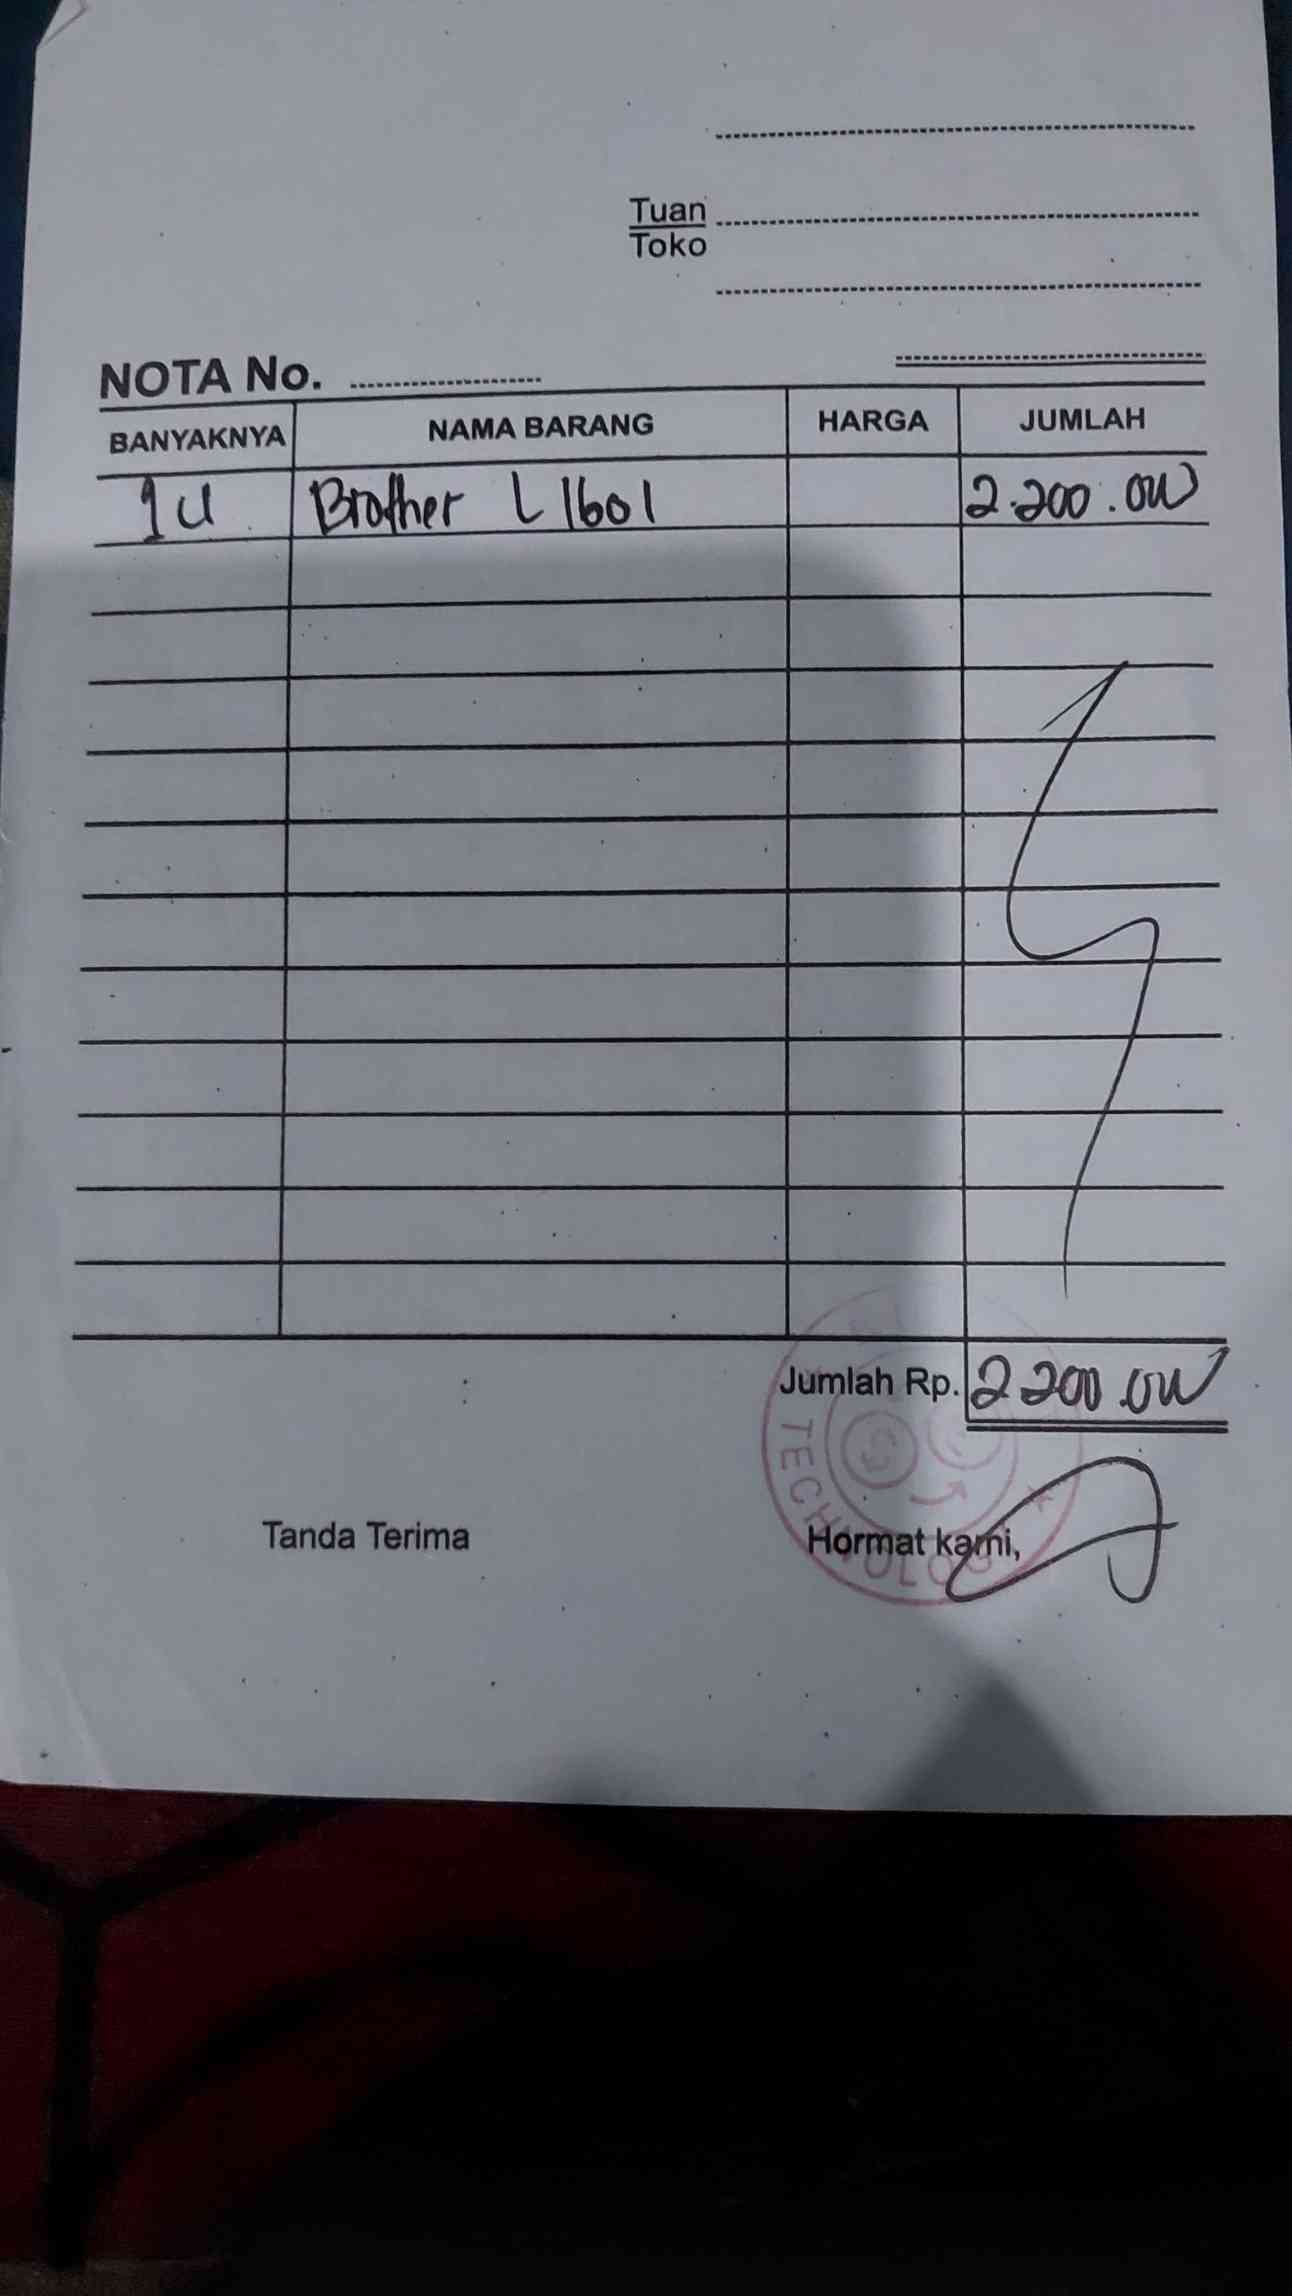 Tuan
Toko
NOTA No.
BANYAKNYA NAMA BARANG HARGA JUMLAH
1 U Brother L 1601 2.200.000
Jumlah Rp. 2 200.000
Tanda Terima Hormat kami,
TECHNOLOGY